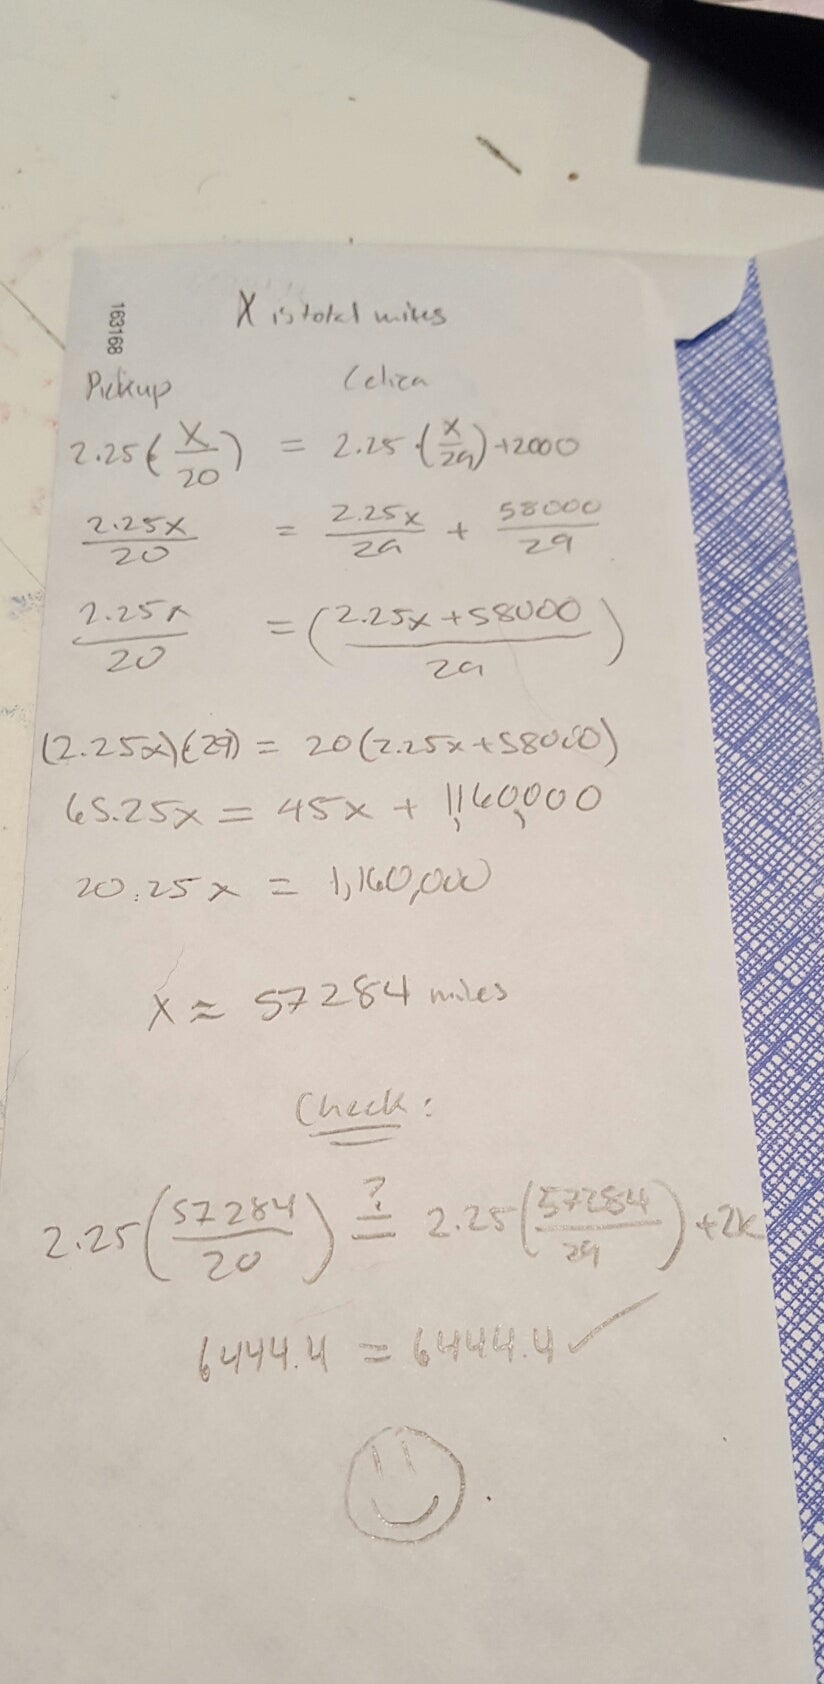 163168
X is total miles
Pickup Celica
2.25(X/20) = 2.25·(x/29)+2000
2.25x/20 = 2.25x/29 + 58000/29
2.25x/20 = (2.25x+58000/29)
(2.25x)(29) = 20(2.25x+58000)
65.25x = 45x + 1,160,000
20.25x = 1,160,000
X ≈ 57284 miles
Check:
2.25(57284/20) ≟ 2.25(57284/29)+2K
6444.4 = 6444.4 ✓